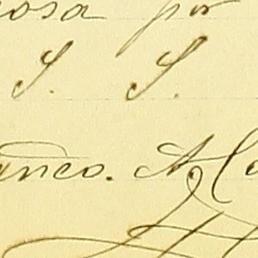 osa por
S. S.
anco. A. Co